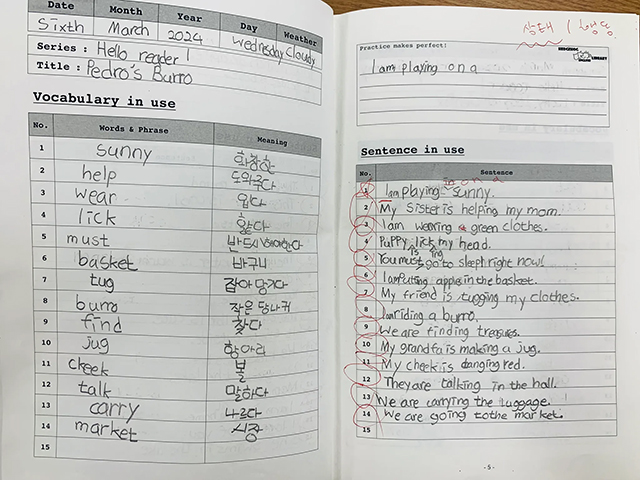 Date Month Year Day Weather
Sixth March 2024 Wednesday Cloudy
Series : Hello reader 1
Title : Pedro's Burro
Vocabulary in use
No. Words & Phrase Meaning
1 sunny 화창한
2 help 도와주다
3 wear 입다
4 lick 핥다
5 must 반드시 해야한다
6 basket 바구니
7 tug 잡아당기다
8 burro 작은 당나귀
9 find 찾다
10 jug 항아리
11 cheek 볼
12 talk 말하다
13 carry 나르다
14 market 시장
15
Practice makes perfect!
HEDGEHOG LIBRARY
I am playing on a
Sentence in use
No. Sentence
in on a
1 I am playing sunny.
2 My sister is helping my mom.
3 I am wearing a green clothes.
4 Puppy lick my head.
is ing
5 You must go to sleep right now!
6 I am puting apples in the basket.
7 My friend is tugging my clothes.
8 I am riding a burro.
9 We are finding treasures.
10 My grandfa is making a jug.
11 My cheek is danging red.
12 They are talking in the hall.
13 We are carrying the luggage.
14 We are going to the market.
15
- 5 -